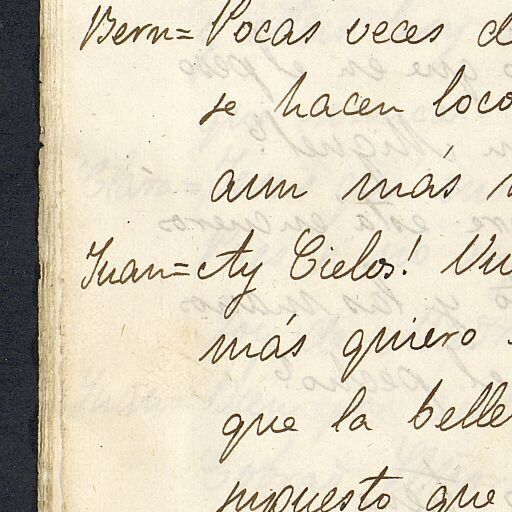 Bern= Pocas veces d
se hacen loco
aun más
Juan= Ay Cielos! Nu
más quiero
que la belle
supuesto que